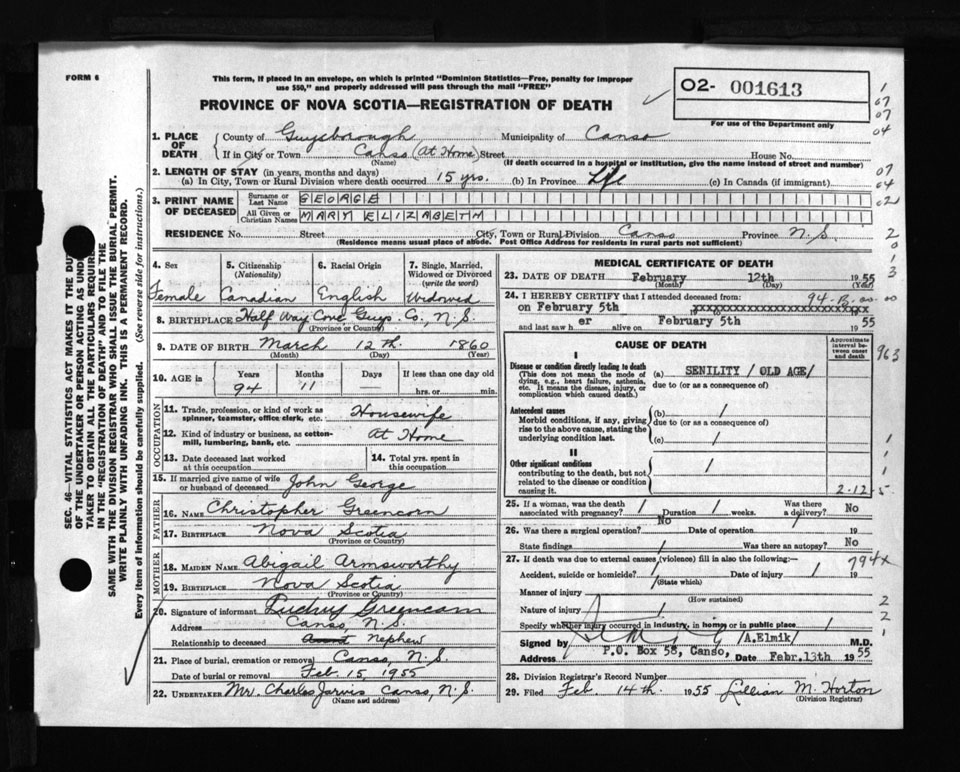 FORM 6
This form, if placed in an envelope, on which is printed "Dominion Statistics—Free, penalty for improper
use $50," and properly addressed will pass through the mail "FREE"
PROVINCE OF NOVA SCOTIA—REGISTRATION OF DEATH
O2- 001613
For use of the Department only
SEC. 46—VITAL STATISTICS ACT MAKES IT THE DU
OF THE UNDERTAKER OR PERSON ACTING AS UND
TAKER TO OBTAIN ALL THE PARTICULARS REQUIRE
IN THE "REGISTRATION OF DEATH" AND TO FILE THE
SAME WITH THE DIVISION REGISTRAR WHO SHALL ISSUE THE BURIAL PERMIT.
WRITE PLAINLY WITH UNFADING INK. THIS IS A PERMANENT RECORD.
Every item of information should be carefully supplied. (See reverse side for instructions.)
1. PLACE OF DEATH
County of Guysborough Municipality of Canso
If in City or Town Canso (At Home) Street House No.
(Name) (If death occurred in a hospital or institution, give the name instead of street and number)
2. LENGTH OF STAY (in years, months and days)
(a) In City, Town or Rural Division where death occurred 15 yrs. (b) In Province Life (c) In Canada (if immigrant)
3. PRINT NAME OF DECEASED
Surname or Last Name GEORGE
All Given or Christian Names MARY ELIZABETH
RESIDENCE No. Street City, Town or Rural Division Canso Province N.S.
(Residence means usual place of abode. Post Office Address for residents in rural parts not sufficient)
4. Sex Female
5. Citizenship (Nationality) Canadian
6. Racial Origin English
7. Single, Married, Widowed or Divorced (write the word) Widowed
8. BIRTHPLACE Half Way Cove Guys. Co., N.S.
(Province or Country)
9. DATE OF BIRTH March 12th 1860
(Month) (Day) (Year)
10. AGE in Years Months Days If less than one day old
94 11 hrs. or min.
OCCUPATION
11. Trade, profession, or kind of work as spinner, teamster, office clerk, etc. Housewife
12. Kind of industry or business, as cotton-mill, lumbering, bank, etc. At Home
13. Date deceased last worked at this occupation
14. Total yrs. spent in this occupation
15. If married give name of wife or husband of deceased John George
FATHER
16. NAME Christopher Greencorn
17. BIRTHPLACE Nova Scotia
(Province or Country)
MOTHER
18. MAIDEN NAME Abigail Armsworthy
19. BIRTHPLACE Nova Scotia
(Province or Country)
20. Signature of informant Greencorn
Address Canso, N.S.
Relationship to deceased Nephew
21. Place of burial, cremation or removal Canso, N.S.
Date of burial or removal Feb. 15, 1955
22. UNDERTAKER Mr. Charles Jarvis Canso, N.S.
(Name and address)
MEDICAL CERTIFICATE OF DEATH
23. DATE OF DEATH February 12th 1955
(Month) (Day)
24. I HEREBY CERTIFY that I attended deceased from:
on February 5th xxxxxxxxxxxxxxxxxxxxxxxxx
and last saw h er alive on February 5th 1955
CAUSE OF DEATH
Approximate interval between onset and death
I
Disease or condition directly leading to death
(This does not mean the mode of dying, e.g., heart failure, asthenia, etc. It means the disease, injury, or complication which caused death.)
(a) SENILITY / OLD AGE/
due to (or as a consequence of)
Antecedent causes
Morbid conditions, if any, giving rise to the above cause, stating the underlying condition last.
(b) /
due to (or as a consequence of)
(c) /
II
Other significant conditions
contributing to the death, but not related to the disease or condition causing it.
/
2-12-5
25. If a woman, was the death associated with pregnancy? / No Duration / weeks. Was there a delivery? No
26. Was there a surgical operation? No Date of operation / 19
State findings / Was there an autopsy? No
27. If death was due to external causes (violence) fill in also the following:—
Accident, suicide or homicide? / Date of injury / 19
(State which)
Manner of injury
(How sustained)
Nature of injury /
Specify whether injury occurred in industry, in home, or in public place /
Signed by /A.Elmik/ M.D.
Address P.O. Box 58, Canso, Date Febr.13th 1955
28. Division Registrar's Record Number
29. Filed Feb. 14th 1955 Lillian M. Horton
(Division Registrar)
1
07
07
04
07
04
02
2
0
3
963
794x
2
2
1